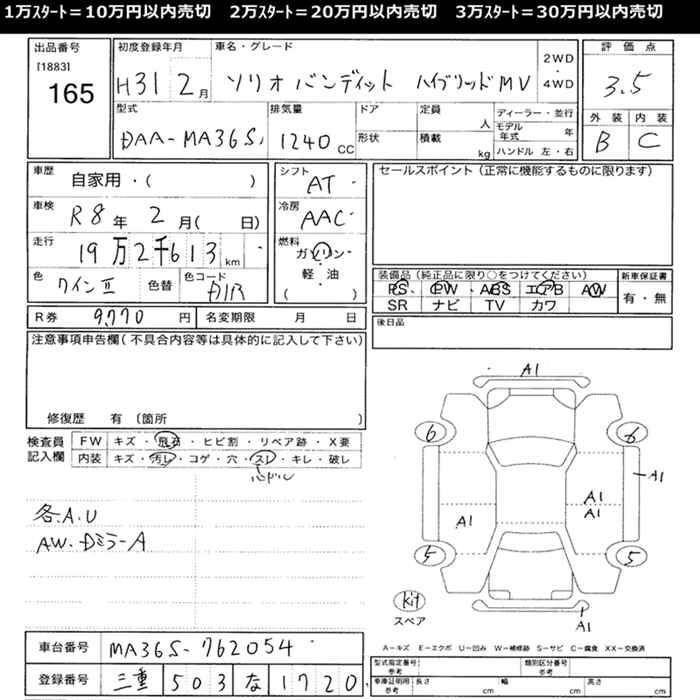 1万ｽﾀｰﾄ＝10万円以内売切　2万ｽﾀｰﾄ＝20万円以内売切　3万ｽﾀｰﾄ＝30万円以内売切
出品番号
[1883]
165
初度登録年月
H31 2月
車名・グレード
ソリオ バンディット ハイブリッドMV
2WD
・
4WD
評価点
3.5
外装 内装
B C
型式
DAA-MA36S
排気量
1240 CC
ドア
形状
定員 人
積載 kg
ディーラー・並行
モデル年式 年
ハンドル 左・右
車歴
自家用・( )
車検
R8年 2月( 日)
走行
19万2千613km
色
ワインⅡ
色替
色コード
シフト
AT
冷房
AAC
燃料
ガソリン
・
軽油
( )
セールスポイント（正常に機能するものに限ります）
装備品（純正品に限り○をつけてください）
PS PW ABS エアB AW
SR ナビ TV カワ
新車保証書
有・無
R券 9,770円
名変期限 月 日
後日品
注意事項申告欄（不具合内容等は具体的に記入して下さい）
修復歴 有（箇所 ）
検査員
記入欄
FW キズ・飛石・ヒビ割・リペア跡・X要
内装 キズ・汚レ・コゲ・穴・スレ・キレ・破レ
ハンドル
各A.U
AW.DミラーA
A1
6 6
A1
A1
A1
A1
5 5
Kit
スペア
A1
車台番号 MA36S-762054
登録番号 三重 503 な 1720
A－キズ E－エクボ U－凹み W－補修跡 S－サビ C－腐食 XX－交換済
型式指定番号 類別区分番号
参考 参考
車庫証明用 長さ 幅 高さ
参考 cm cm cm